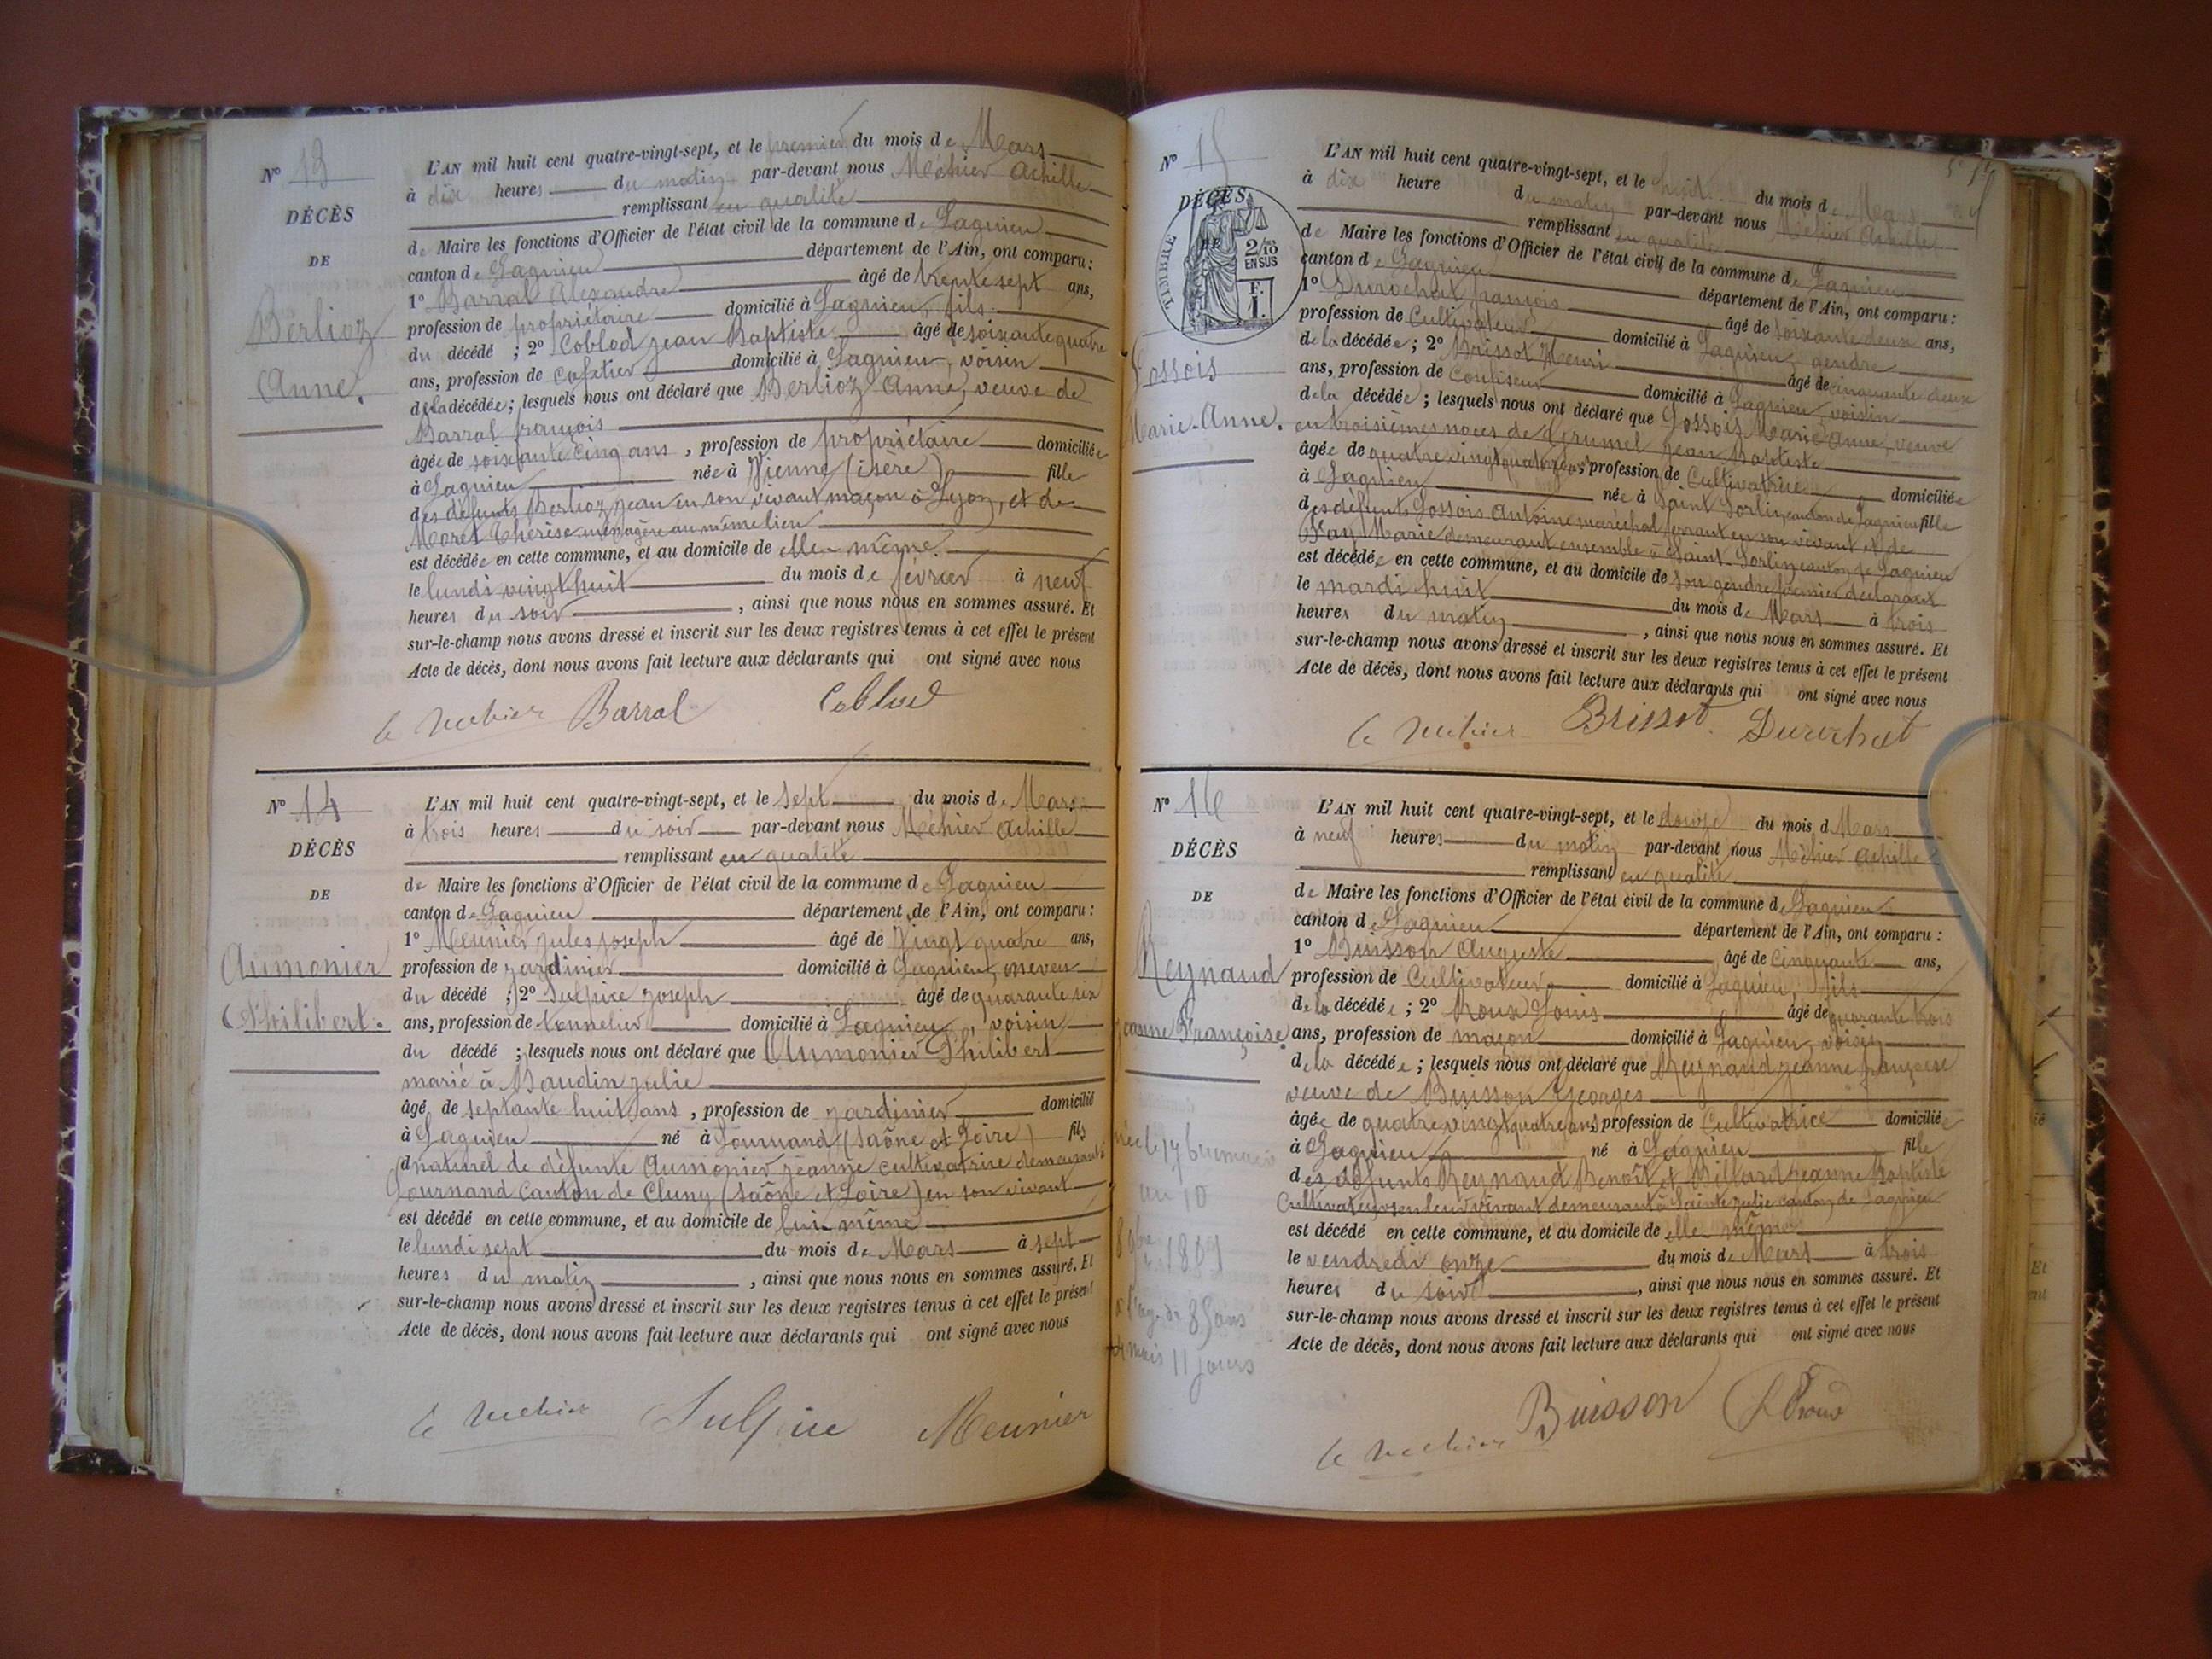 N° 13
DÉCÈS
DE
Berlioz
Anne.
L'AN mil huit cent quatre-vingt-sept, et le premier du mois de Mars
à dix heures du matin par-devant nous Méhier Achille
remplissant en qualité
de Maire les fonctions d'Officier de l'état civil de la commune de Lagnieu
canton de Lagnieu département de l'Ain, ont comparu :
1° Barral Alexandre âgé de trente sept ans,
profession de propriétaire domicilié à Lagnieu, fils
du décédé ; 2° Coblod jean Baptiste âgé de soixante quatre
ans, profession de cafetier domicilié à Lagnieu, voisin
de la décédée ; lesquels nous ont déclaré que Berlioz Anne, veuve de
Barral françois
âgée de soixante cinq ans , profession de propriétaire domiciliée
à Lagnieu née à Vienne (isère) fille
des défunts Berlioz jean en son vivant maçon à Lyon, et de
Morel Thérèse ménagère au même lieu
est décédée en cette commune, et au domicile de elle même.
le lundi vingt huit du mois de février à neuf
heures du soir , ainsi que nous nous en sommes assuré. Et
sur-le-champ nous avons dressé et inscrit sur les deux registres tenus à cet effet le présent
Acte de décès, dont nous avons fait lecture aux déclarants qui ont signé avec nous
Barral Coblod
N° 14
DÉCÈS
DE
Aumonier
Philibert.
L'AN mil huit cent quatre-vingt-sept, et le sept du mois de Mars
à trois heures du soir par-devant nous Méhier Achille
remplissant en qualité
de Maire les fonctions d'Officier de l'état civil de la commune de Lagnieu
canton de Lagnieu département de l'Ain, ont comparu :
1° Meunier jules joseph âgé de Vingt quatre ans,
profession de jardinier domicilié à Lagnieu, neveu
du décédé ; 2° Sulpice joseph âgé de quarante six
ans, profession de tonnelier domicilié à Lagnieu, voisin
du décédé ; lesquels nous ont déclaré que Aumonier Philibert
marié à Baudin julie
âgé de septante huit ans , profession de jardinier domicilié
à Lagnieu né à Lournand (saône et Loire) fils
naturel de défunte Aumonier jeanne cultivatrice demeurant à
Lournand canton de Cluny (saône et Loire) en son vivant
est décédé en cette commune, et au domicile de lui même
le lundi sept du mois de Mars à sept
heures du matin , ainsi que nous nous en sommes assuré. Et
sur-le-champ nous avons dressé et inscrit sur les deux registres tenus à cet effet le présent
Acte de décès, dont nous avons fait lecture aux déclarants qui ont signé avec nous
Sulpice Meunier
N° 15
DÉCÈS
DE
TIMBRE
2/10
EN SUS
F.
1.
Gossois
Marie-Anne.
L'AN mil huit cent quatre-vingt-sept, et le huit du mois de Mars
à dix heure du matin par-devant nous Méhier Achille
remplissant en qualité
de Maire les fonctions d'Officier de l'état civil de la commune de Lagnieu
canton de Lagnieu département de l'Ain, ont comparu :
1° Durochat françois âgé de soixante deux ans,
profession de Cultivateur domicilié à Lagnieu, gendre
de la décédée ; 2° Brissot Henri âgé de cinquante deux
ans, profession de Confiseur domicilié à Lagnieu voisin
de la décédée ; lesquels nous ont déclaré que Gossois Marie Anne, veuve
en troisièmes noces de jean Baptiste
âgée de quatre vingt quatre ans, profession de Cultivatrice domiciliée
à Lagnieu née à Saint Sorlin, canton de Lagnieu fille
des défunts Gossois Antoine maréchal ferrant en son vivant et de
Marie demeurant ensemble à Saint Sorlin canton de Lagnieu
est décédée en cette commune, et au domicile de son gendre premier déclarant
le mardi huit du mois de Mars à trois
heures du matin , ainsi que nous nous en sommes assuré. Et
sur-le-champ nous avons dressé et inscrit sur les deux registres tenus à cet effet le présent
Acte de décès, dont nous avons fait lecture aux déclarants qui ont signé avec nous
Brissot Durochat
N° 16
DÉCÈS
DE
Reynaud
jeanne Françoise.
an 10
1801
85 ans
4 mois 11 jours
L'AN mil huit cent quatre-vingt-sept, et le douze du mois d Mars
à neuf heures du matin par-devant nous Méhier Achille
remplissant en qualité
de Maire les fonctions d'Officier de l'état civil de la commune d Lagnieu
canton de Lagnieu département de l'Ain, ont comparu :
1° Buisson Auguste âgé de cinquante ans,
profession de Cultivateur domicilié à Lagnieu, fils
de la décédée ; 2° Roux Louis âgé de quarante trois
ans, profession de maçon domicilié à Lagnieu, voisin
de la décédée ; lesquels nous ont déclaré que Reynaud jeanne françoise
veuve de Buisson Georges
âgée de quatre vingt quatre ans, profession de Cultivatrice domiciliée
à Lagnieu né à Lagnieu fille
des défunts Reynaud Benoît et Billard jeanne Baptiste
Cultivateurs en leur vivant demeurant à Sainte julie canton de Lagnieu
est décédé en cette commune, et au domicile de elle même
le vendredi onze du mois de Mars à trois
heures du soir , ainsi que nous nous en sommes assuré. Et
sur-le-champ nous avons dressé et inscrit sur les deux registres tenus à cet effet le présent
Acte de décès, dont nous avons fait lecture aux déclarants qui ont signé avec nous
Buisson L Roux